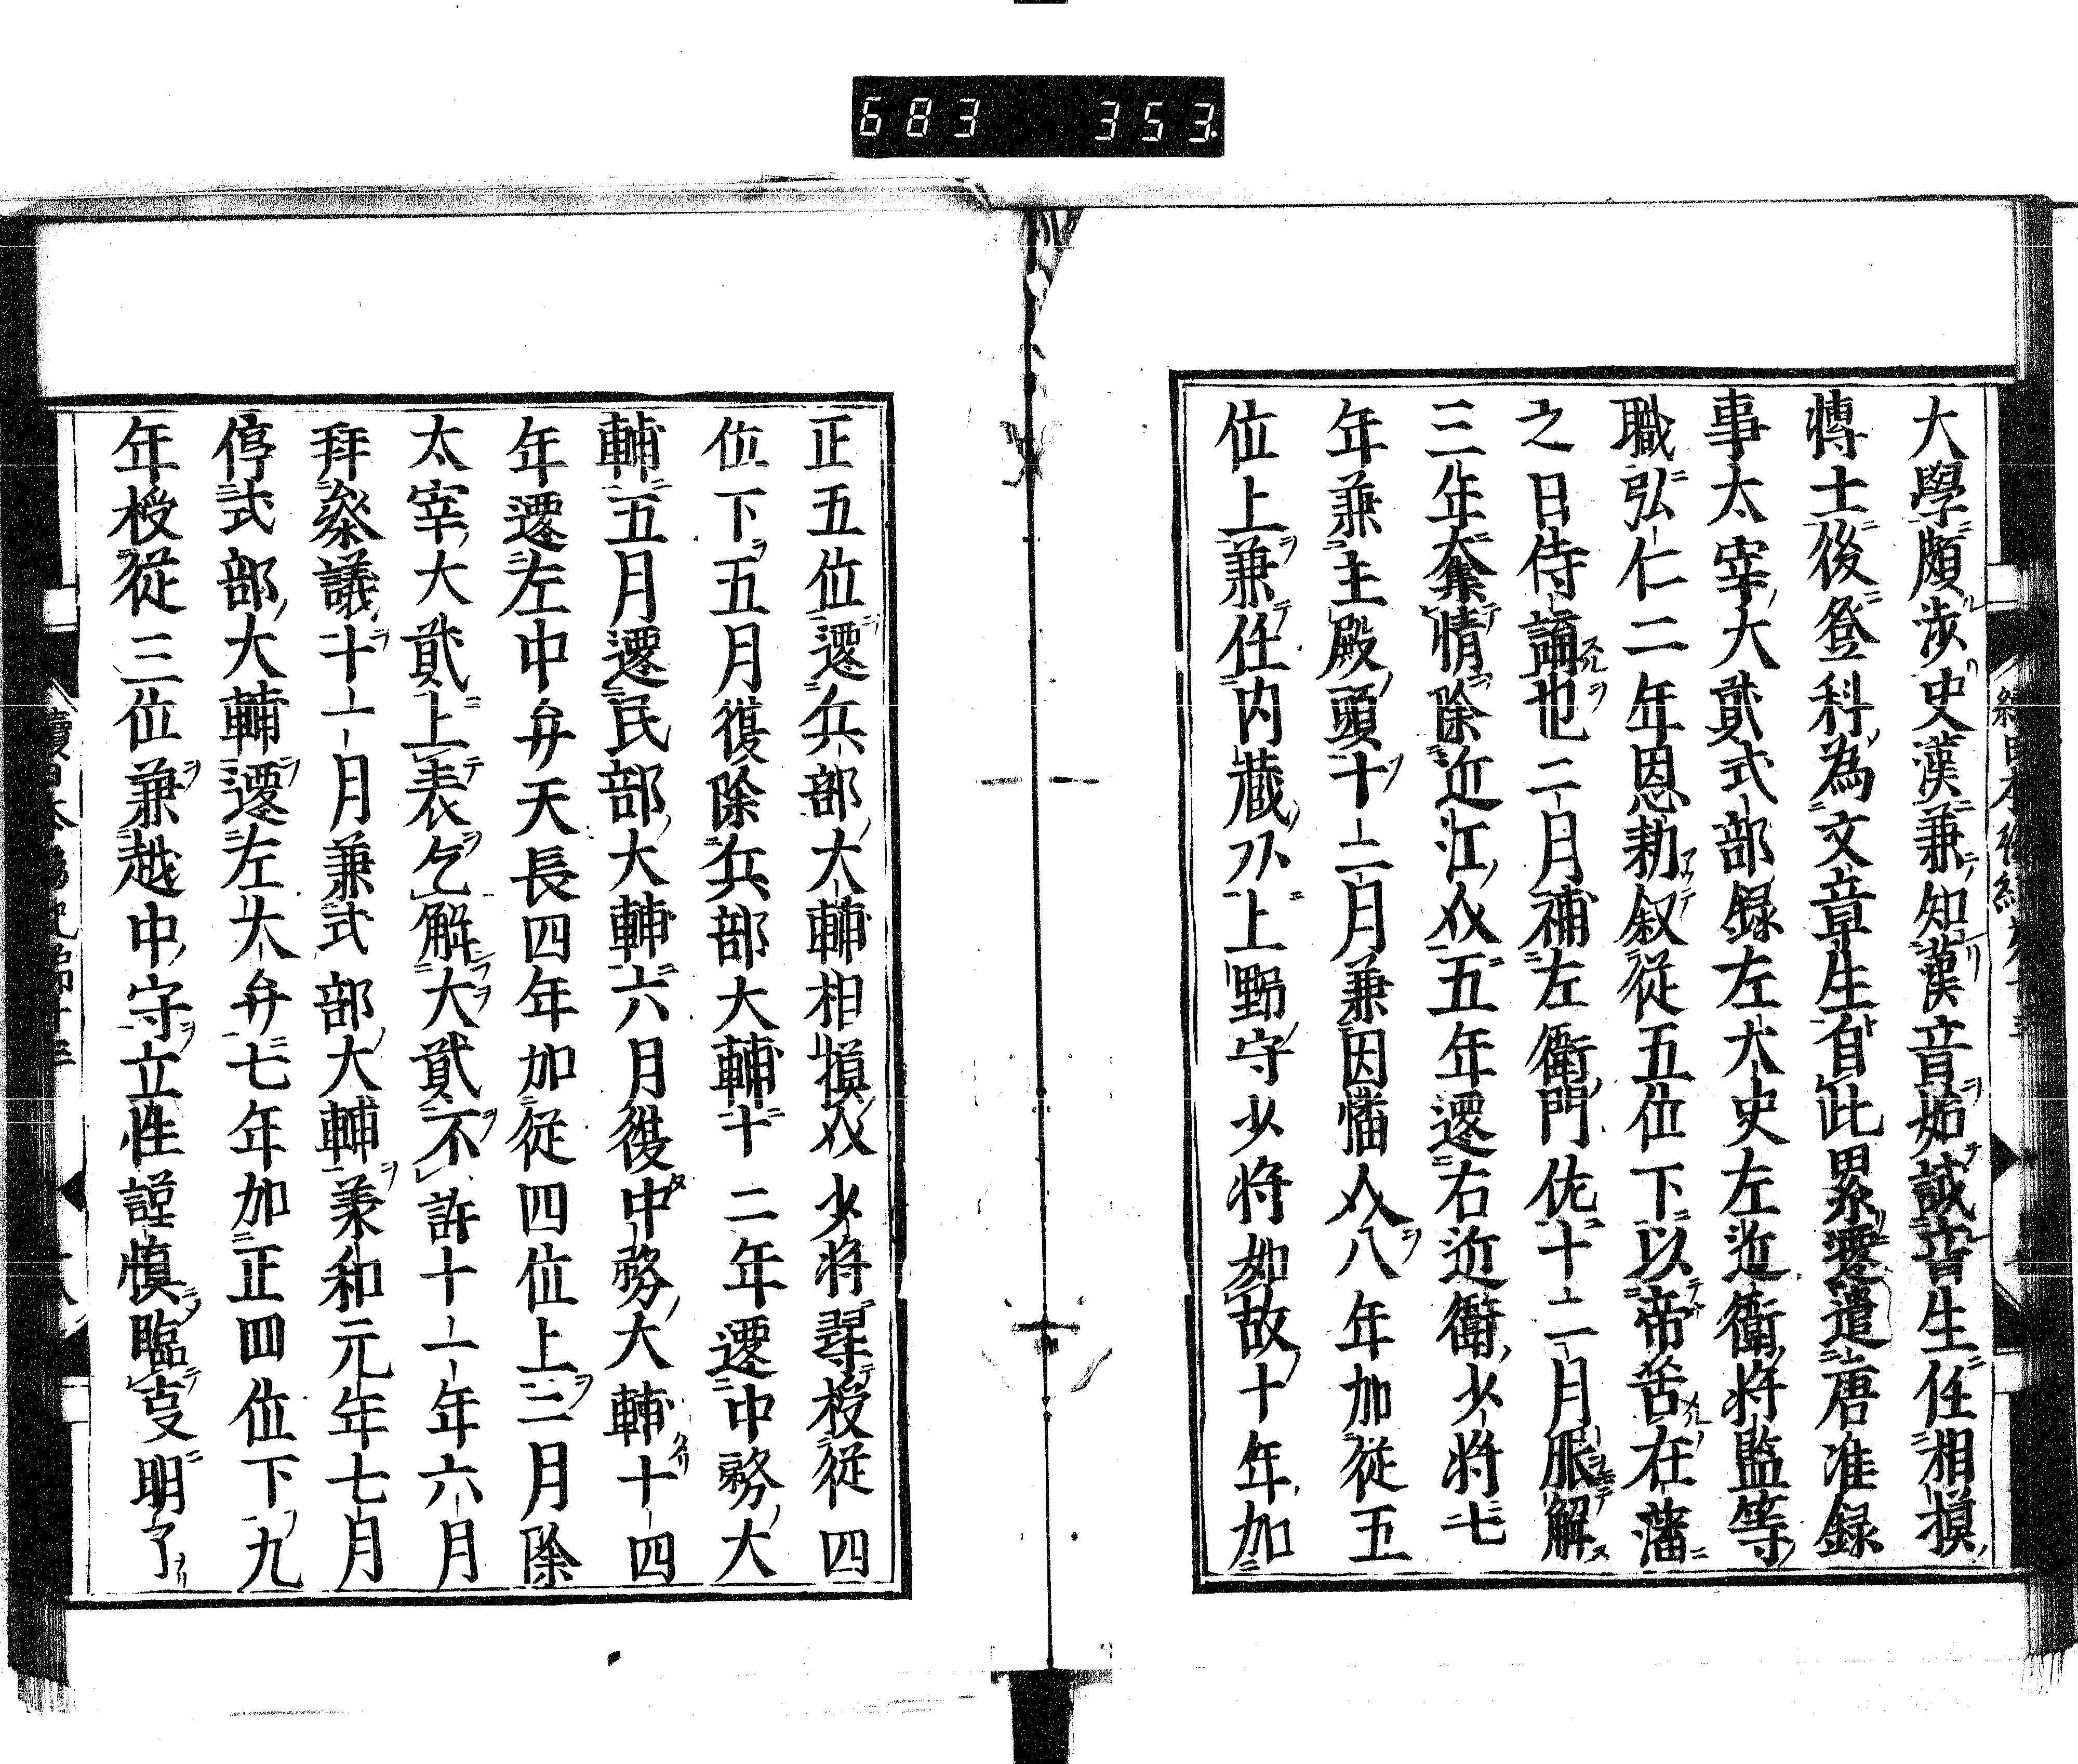 683 353
大學頗涉史漢兼知漢音始試音生任相摸
博士後登科為文章生自此累遷遣唐准録
事太宰大貳式部録左大史左近衛將監等
職弘仁二年恩勅叙從五位下以帝昔在藩
之日侍誦也二月補左衛門佐十二月服解
三年奪情除近江介五年遷右近衛少將七
年兼主殿頭十二月兼因幡介八年加從五
位上兼任内藏頭上野守少將如故十年加
正五位遷兵部大輔相摸介少將尋授從四
位下五月復除兵部大輔十二年遷中務大
輔五月遷民部大輔六月復中務大輔十四
年遷左中弁天長四年加從四位上二月除
太宰大貳上表乞解大貳不許十一年六月
拜參議十一月兼式部大輔承和元年七月
停式部大輔遷左大弁七年加正四位下九
年授從三位兼越中守立性謹慎臨事明了